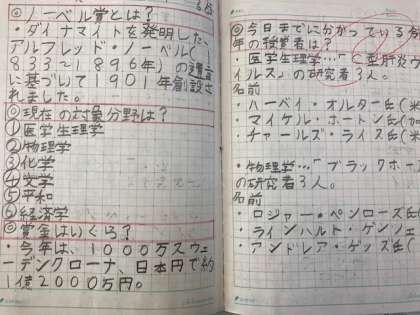 ◎ノーベル賞とは？
・ダイナマイトを発明した、
アルフレッド・ノーベル(
833～1896年)の遺言
に基づいて1901年創設さ
れました。
◎現在の対象分野は？
①医学生理学
②物理学
③化学
④文学
⑤平和
⑥経済学
◎賞金はいくら？
・今年は、1000万スウェ
ーデンクローナ、日本円で約
1億2000万円。
◎今日までに分かっている今
年の受賞者は？
・医学生理学…「C型肝炎ウ
イルス」の研究者3人。
名前
・ハーベイ・オルター氏(米
・マイケル・ホートン氏(
・チャールズ・ライス氏(米
・物理学…「ブラックホー
の研究者3人。
名前
・ロジャー・ペンローズ氏(
・ラインハルト・ゲンツェ
・アンドレア・ゲッズ氏(